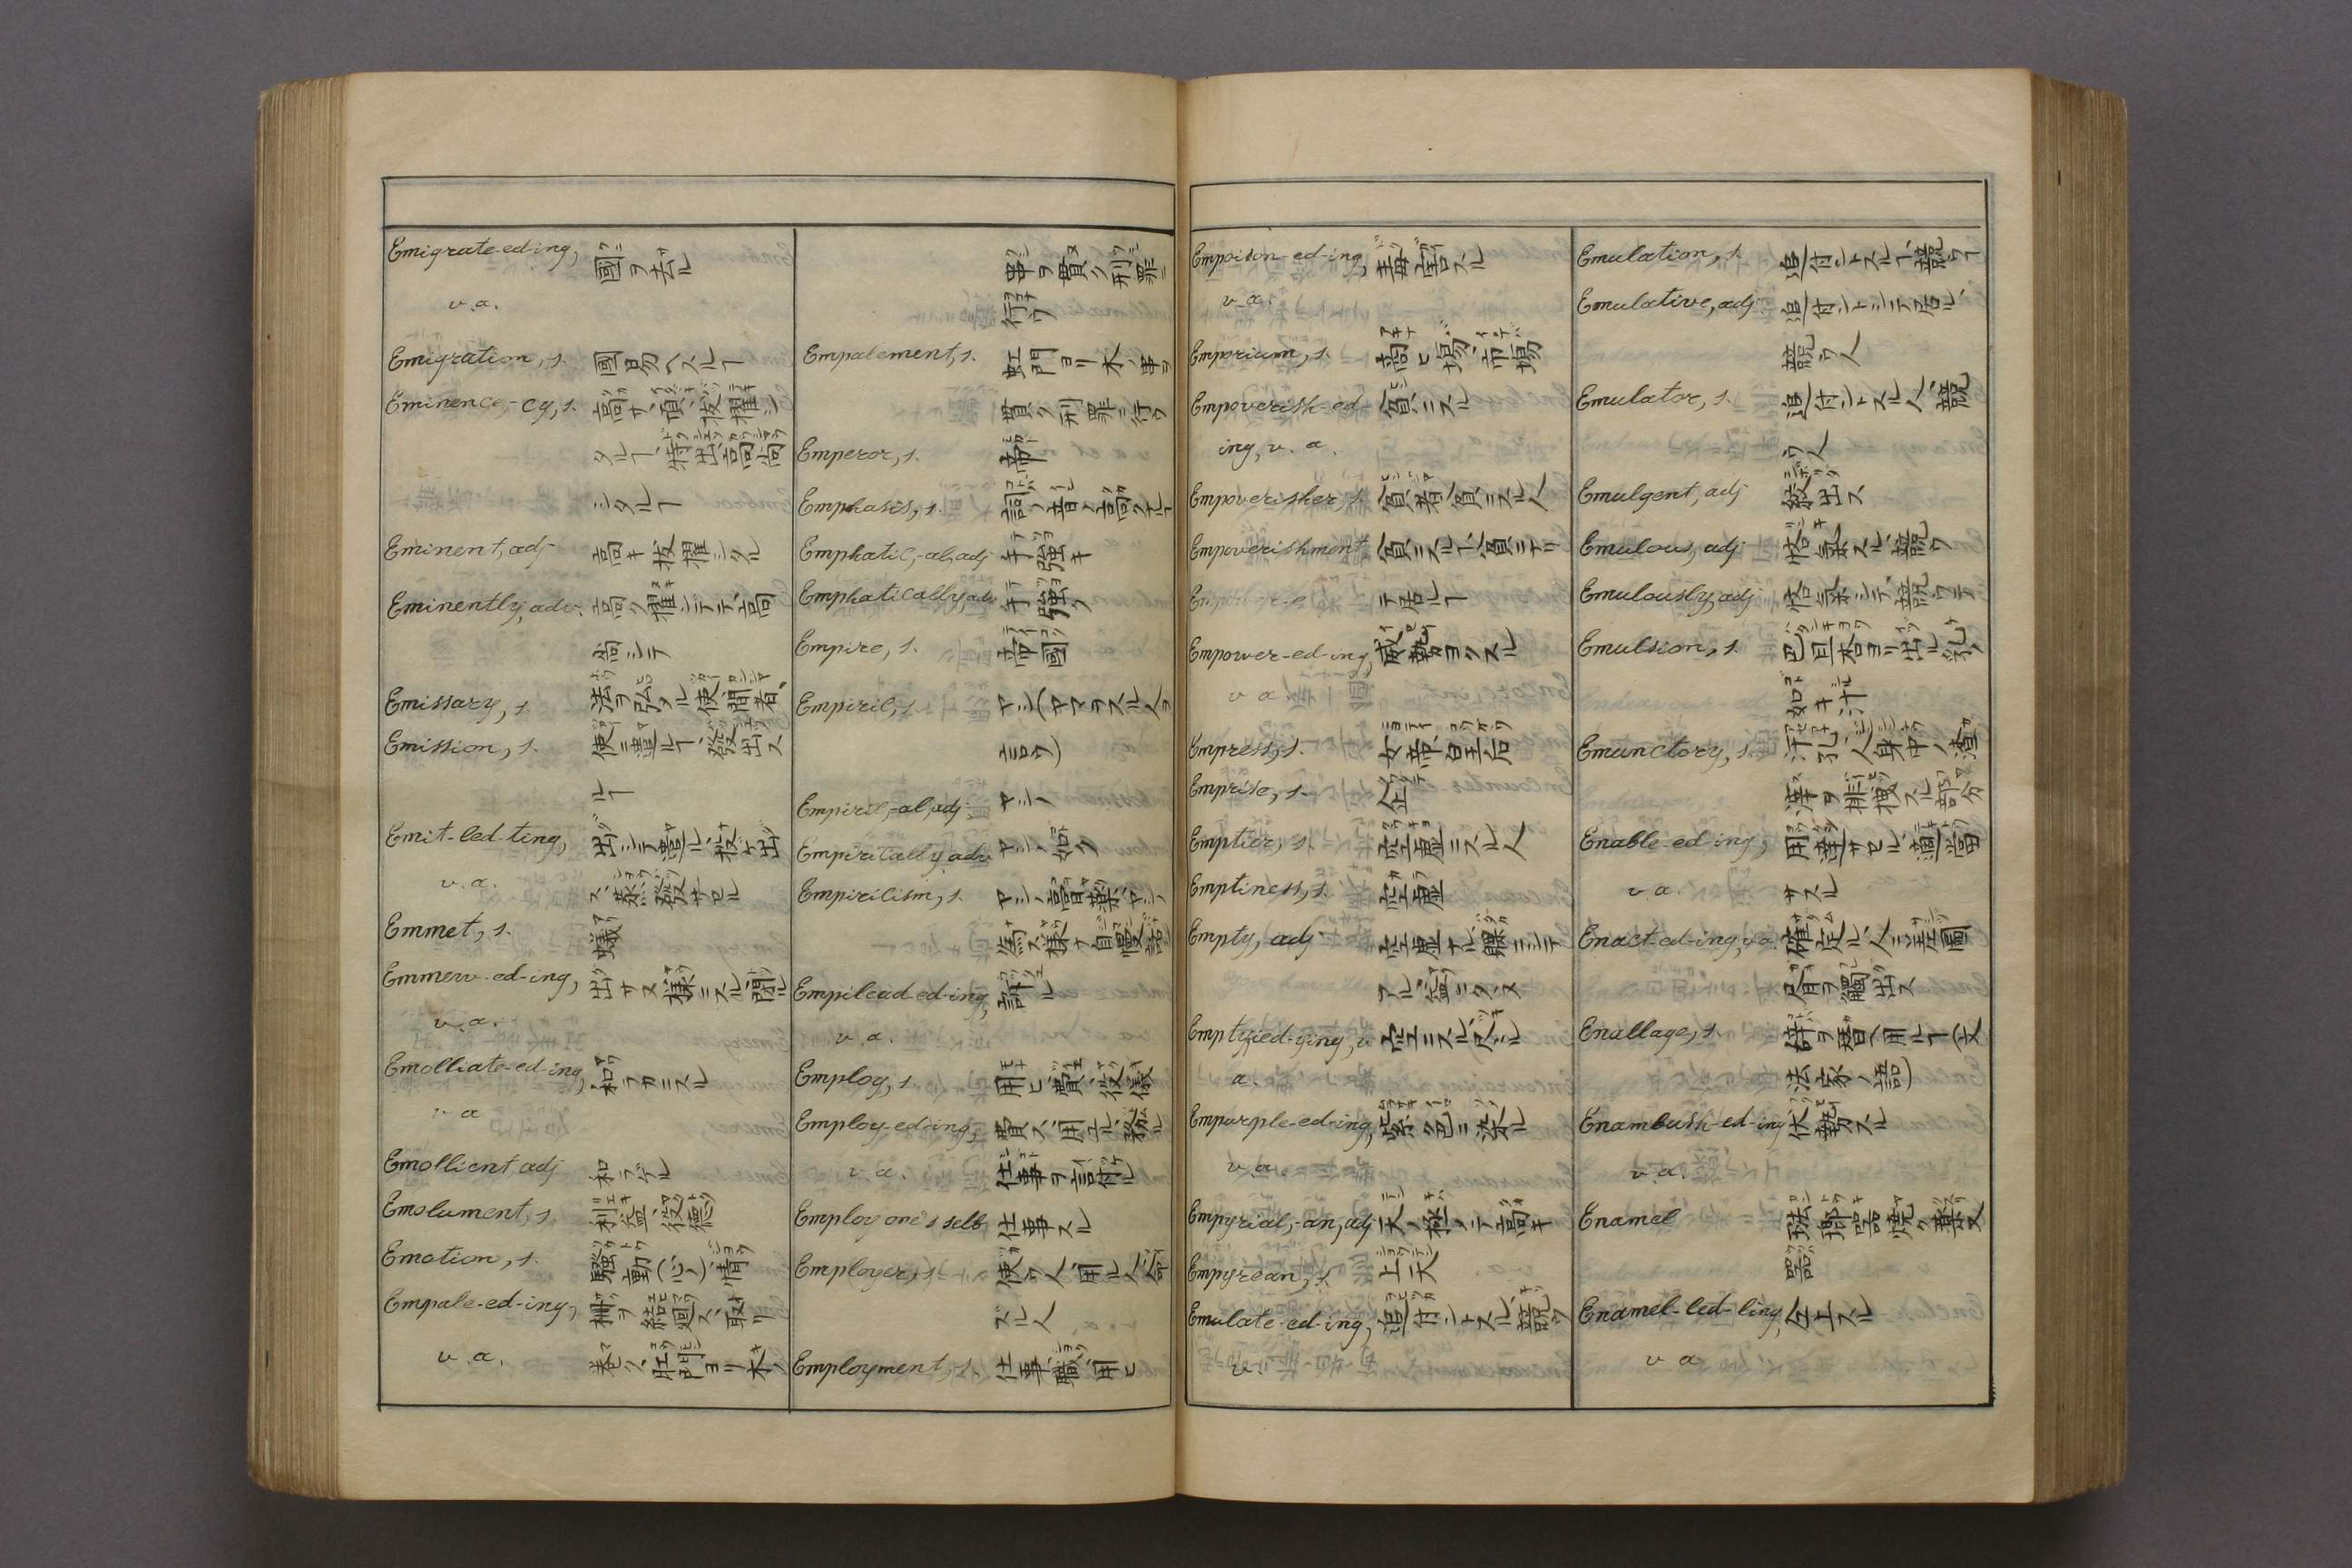 Emigrate-ed-ing, 國ヲ去ル
v.a.
Emigration, s. 國易ヘスルヿ
Eminence,-cy, s. 高サ、頂、抜擢シ
タルヿ、特出、高尚
シタルヿ
Eminent, adj 高キ、抜擢シタル
Eminently, adv. 高ク、擢ンデテ、高
尚シテ
Emissary, s.
Emission, s.
ルヿ
Emit-ted-ting,
v.a.
Emmet, s. 蟻
Emmew-ed-ing, 出サヌ様ニスル、閉ル
v.a.
Emolliate-ed-ing, 和ラカニスル
v a
Emollient, adj 和ラゲル
Emolument, s. 利益、役徳
Emotion, s. 騒動(心ノ)、情
Empale-ed-ing,
v.a.
串ヲ貫ク刑罪ニ
行フ
Empalement, s.
貫ク刑罪ニ行フ
Emperor, s. 帝
Emphasis, s. 詞ノ音ノ高クナルヿ
Emphatic,-al, adj 手強キ
Emphatically, adv 手強ク
Empire, s. 帝國
Empiric, s. ヤシ(ヤマヲスル人ヲ
言フ)
Empiric,-al, adj. ヤシノ
Empirically, adv ヤシノ如ク
Empiricism, s.
Empilead-ed-ing, 訴ル
v.a.
Employ, s.
Employ-ed-ing,
v.a. 仕事ヲ言付ル
Employ one's self 仕事スル
Employer, s. 使フ人、用ル人、命
ズル人
Employment, s. 仕事、職、用ヒ
Empoison-ed-ing, 毒害スル
v.a.
Emporium, s. 商ヒ場、市場
Empoverish-ed 貧ニスル
ing, v. a.
Empoverisher, s. 貧者、貧ニスル人
Empoverishment 貧ニスルヿ、貧ニナリ
テ居ルヿ
Empower-ed-ing, 威勢ヨクスル
v a
Empress, s. 女帝、皇后
Emprise, s. 企
Emptier, s. 空虚ニスル人
Emptiness, s. 空虚
Empty, adj 空虚ナル、
Emptyied-ying, v 空ニスル、尽ル
a.
Empurple-ed-ing, 紫色ニ染ル
v.a.
Empyrial,-an, adj 天ノ極ノ、テ高キ
Empyrean, s. 上天
Emulate-ed-ing, 追付ントスル、競フ
v.
Emulation, s. 追付ントスルヿ、競フヿ
Emulative, adj 追付ントシテ居ル、
競フ人
Emulator, s. 追付ントスル人、競
フ人
Emulgent, adj 絞出ス
Emulous, adj 悋氣スル、競フ
Emulously, adj 悋氣シテ、競フテ
Emulsion, s. 巴旦杏ヨリ出ル乳ノ
如キ汁
Emunctory, s. 汗孔、人身中ノ渣
滓ヲ排泄スル部分
Enable-ed-ing, 用達サセル、適當
v a. サスル
Enact-ed-ing, v a.
Enallage, s. 辞ヲ替ヘ用ルヿ(文
法家ノ語)
Enambush-ed-ing 伏勢スル
v.a.
Enamel 琺瑯器焼ク薬、又
器
Enamel-led-ling, 仝上スル
v a